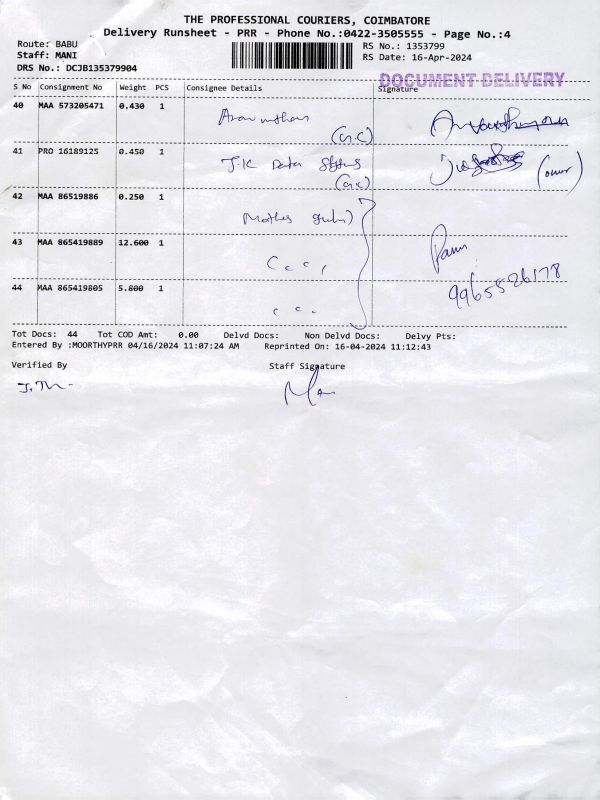 THE PROFESSIONAL COURIERS, COIMBATORE
Delivery Runsheet - PRR - Phone No.:0422-3505555 - Page No.:4
Route: BABU
RS No.: 1353799
Staff: MANI
RS Date: 16-Apr-2024
DRS No.: DCJB135379904
DOCUMENT DELIVERY
S No Consignment No Weight PCS Consignee Details Signature
40 MAA 573205471 0.430 1
41 PRO 16189125 0.450 1 J.K Data
(owner)
42 MAA 86519886 0.250 1
43 MAA 865419889 12.600 1
44 MAA 865419805 5.800 1
9965526178
Tot Docs: 44 Tot COD Amt: 0.00 Delvd Docs: Non Delvd Docs: Delvy Pts:
Entered By :MOORTHYPRR 04/16/2024 11:07:24 AM Reprinted On: 16-04-2024 11:12:43
Verified By Staff Signature